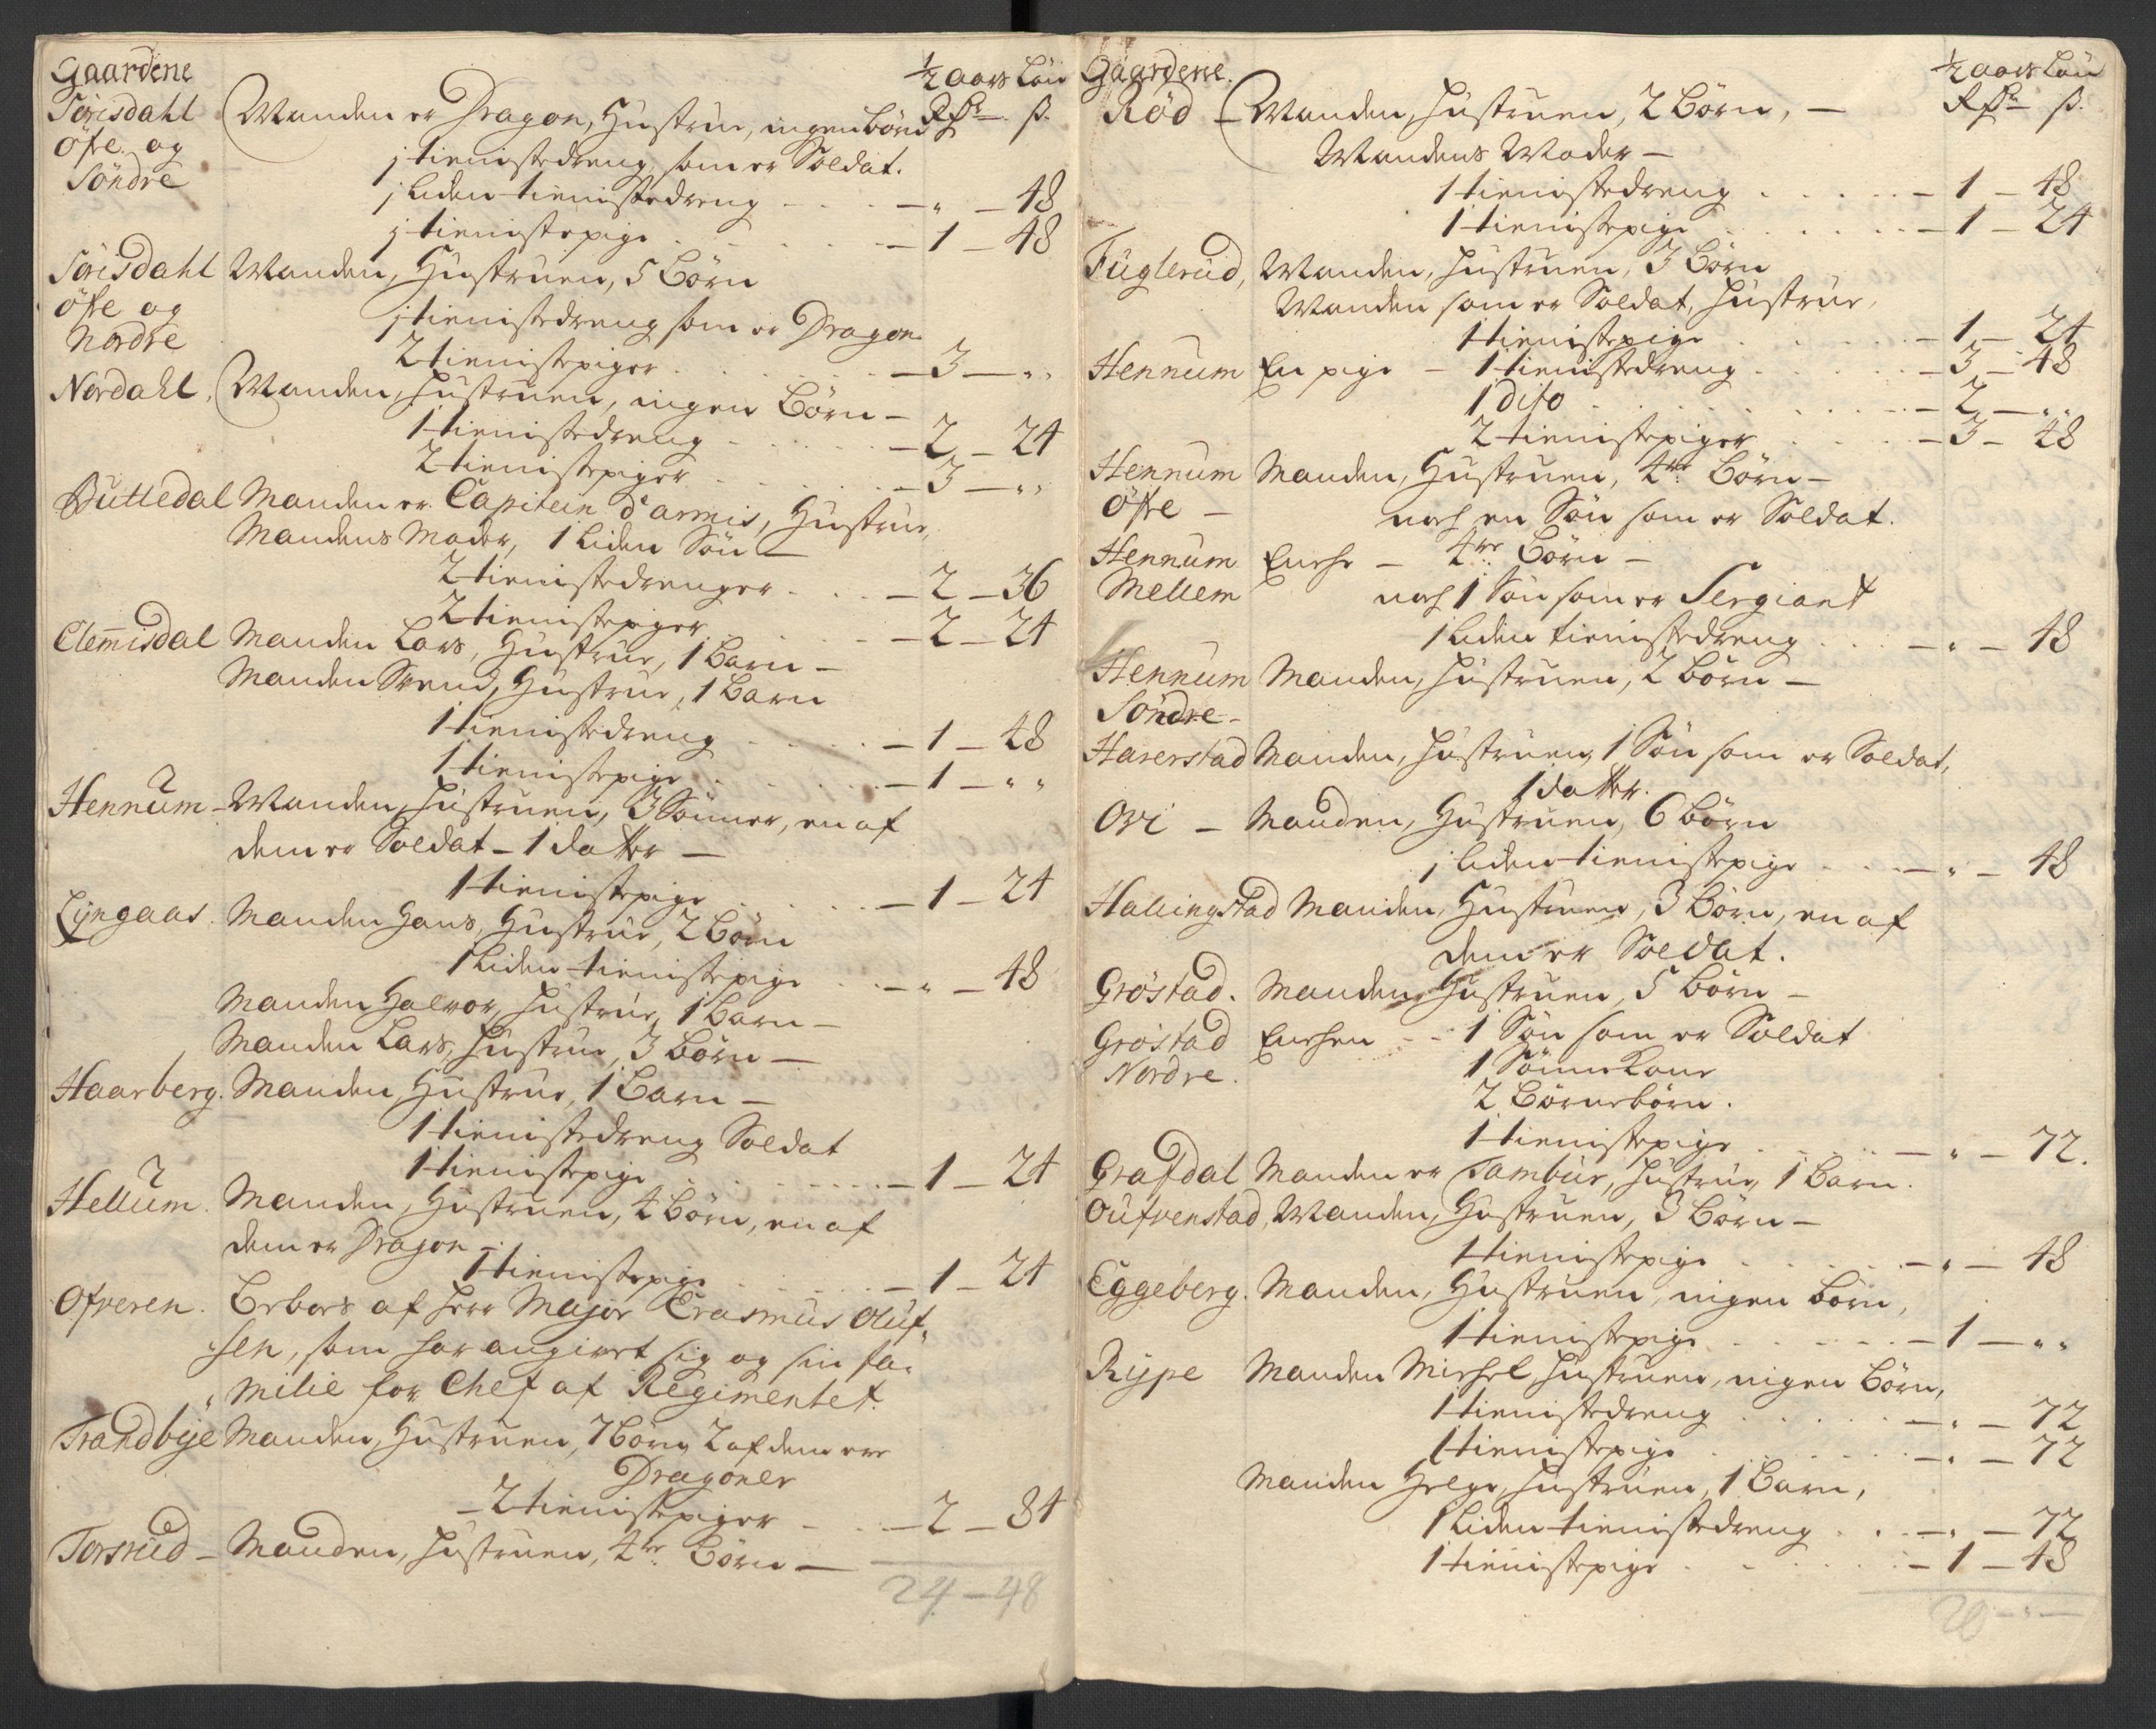 Gaardene ½ aars Løn
Rdr ß.
Torisdahl Manden er Dragon, Hustrue, ingen børn
Øfre og 1 tienistedreng som er Soldat.
Söndre 1 liden tienistedreng - „ - 48
1 tienistepige - 1 - 48
Torisdahl Manden, Hustruen, 5 børn
øfre og 1 tienistedreng som er Dragon
Nordre 2 tienistepiger - 3 - „
Nordahl. Manden, Hustruen, ingen Børn -
1 tienistedreng - 2 - 24
2 tienistepiger - 3 - „
Manden er Capitein d'armis, Hustrue,
Mandens Moder, 1 liden Søn -
2 tienistedrenger - 2 - 36
2 tienistepiger - 2 - 24
Clemisdal Manden Lars, Hustrue, 1 barn -
Manden Svend, Hustrue, 1 barn
1 tienistedreng - 1 - 48
1 tienistepige - 1 - „
Hennum - Manden, Hustruen, 3 Sønner, en af
dem er Soldat - 1 datter -
1 tienistepige - 1 - 24
Lyngaas. Manden Hans, Hustrue, 2 børn
1 liden tienistepige - „ - 48
Manden Halvor, Hustrue, 1 barn -
Manden Lars, Hustrue, 3 børn -
Haarberg. Manden, Hustrue, 1 Barn -
1 tienistedreng Soldat
1 tienistepige - 1 - 24
Hellum. Manden, Hustruen, 4 børn, en af
dem er Dragon -
1 tienistepige - 1 - 24
Ofveren. Beboes af Herr Major Erasmus Oluf„
sen, som har angivet sig og sin fa„
„milie for Chef af Regimentet.
Trandbye Manden, Hustruen, 7 børn, 2 af dem ere
Dragoner
- 2 tienistepiger - 2 - 84
Torsrud - Manden, Hustruen, 4re Børn -
24 - 48
Gaardene. ½ aars Løn
Rdr ß.
Rød - Manden, Hustruen, 2 børn, -
Mandens Moder -
1 tienistedreng - 1 - 48
1 tienistepige - 1 - 24
Fuglerud, Manden, Hustruen, 3 børn
Manden som er Soldat, Hustrue,
1 tienistepige - 1 - 24
Hennum En pige - 1 tienistedreng - 3 - 48
1 dito - 2 - „
2 tienistepiger - 3 - 48
Hennum Manden, Hustruen, 4re Børn -
Öfre - noch en Søn som er Soldat.
Hennum Enche - 4re Børn -
Mellem noch 1 Søn som er Sergiant
1 liden tienistedreng - „ - 48
Hennum Manden, Hustruen, 2 børn -
Söndre -
Haverstad Manden, Hustruen, 1 Søn som er Soldat,
1 datter.
Ovi - Manden, Hustruen, 6 børn
1 liden tienistepige - „ - 48
Hallingstad Manden, Hustruen, 3 Børn, en af
dem er Soldat.
Gröstad. Manden, Hustruen, 5 børn -
Gröstad Enchen - - 1 Søn som er Soldat
Nordre. 1 Sønnekone
2 Børnebørn.
1 tienistepige - „ - 72.
Grafdal Manden er Tambur, Hustrue, 1 barn.
Oufvenstad, Manden, Hustruen, 3 børn -
1 tienistepige - „ - 48
Eggeberg. Manden, Hustruen, ingen børn,
1 tienistepige - 1 - „
Rype Manden Michel, Hustruen, ingen børn,
1 tienistedreng - „ - 72
1 tienistepige - „ - 72
Manden Helge, Hustruen, 1 barn,
1 liden tienistedreng - „ - 72
1 tienistepige - 1 - 48
20 - „ -